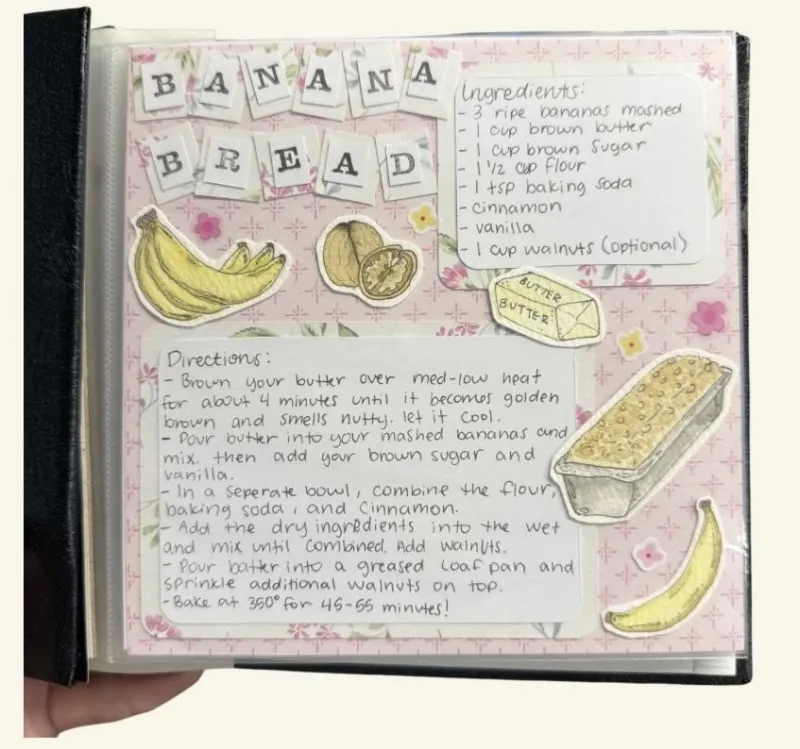 BANANA
BREAD
Ingredients:
- 3 ripe bananas mashed
- 1 cup brown butter
- 1 cup brown sugar
- 1 1/2 cup flour
- 1 tsp baking soda
- cinnamon
- vanilla
- 1 cup walnuts (optional)
BUTTER
BUTTER
Directions:
- Brown your butter over med-low heat
for about 4 minutes until it becomes golden
brown and smells nutty. let it cool.
- Pour butter into your mashed bananas and
mix. then add your brown sugar and
vanilla.
- In a seperate bowl, combine the flour,
baking soda, and cinnamon.
- Add the dry ingredients into the wet
and mix until combined. Add walnuts.
- Pour batter into a greased loaf pan and
sprinkle additional walnuts on top.
- Bake at 350° for 45-55 minutes!